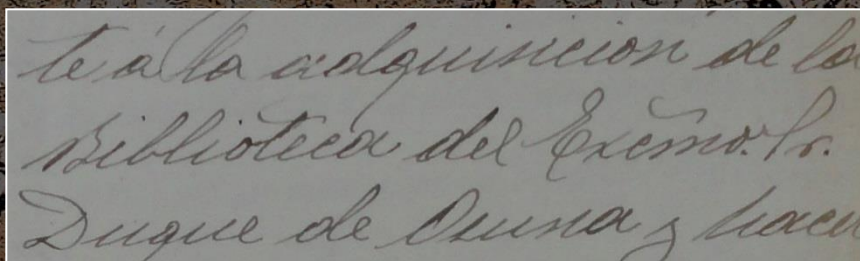 te á la adquisicion de la
Biblioteca del Excmo. Sr.
Duque de Osuna y hacer